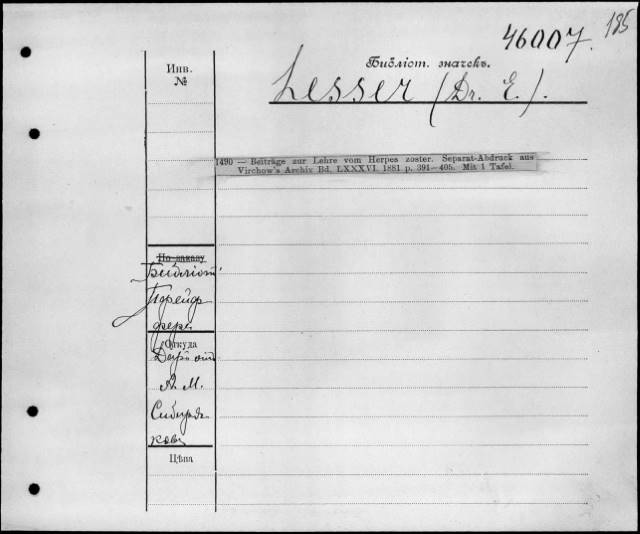 185
46007.
Библіот. значекъ.
Инв.
№
Lesser (Dr. E.).
1490 — Beiträge zur Lehre vom Herpes zoster. Separat-Abdruck aus
Virchow's Archiv Bd. LXXXVI. 1881 p. 391—405. Mit 1 Tafel.
По заказу
Библіот.
Порейф
фера
Откуда
Даръ отъ
А. М.
Сибиря
кова
Цѣна